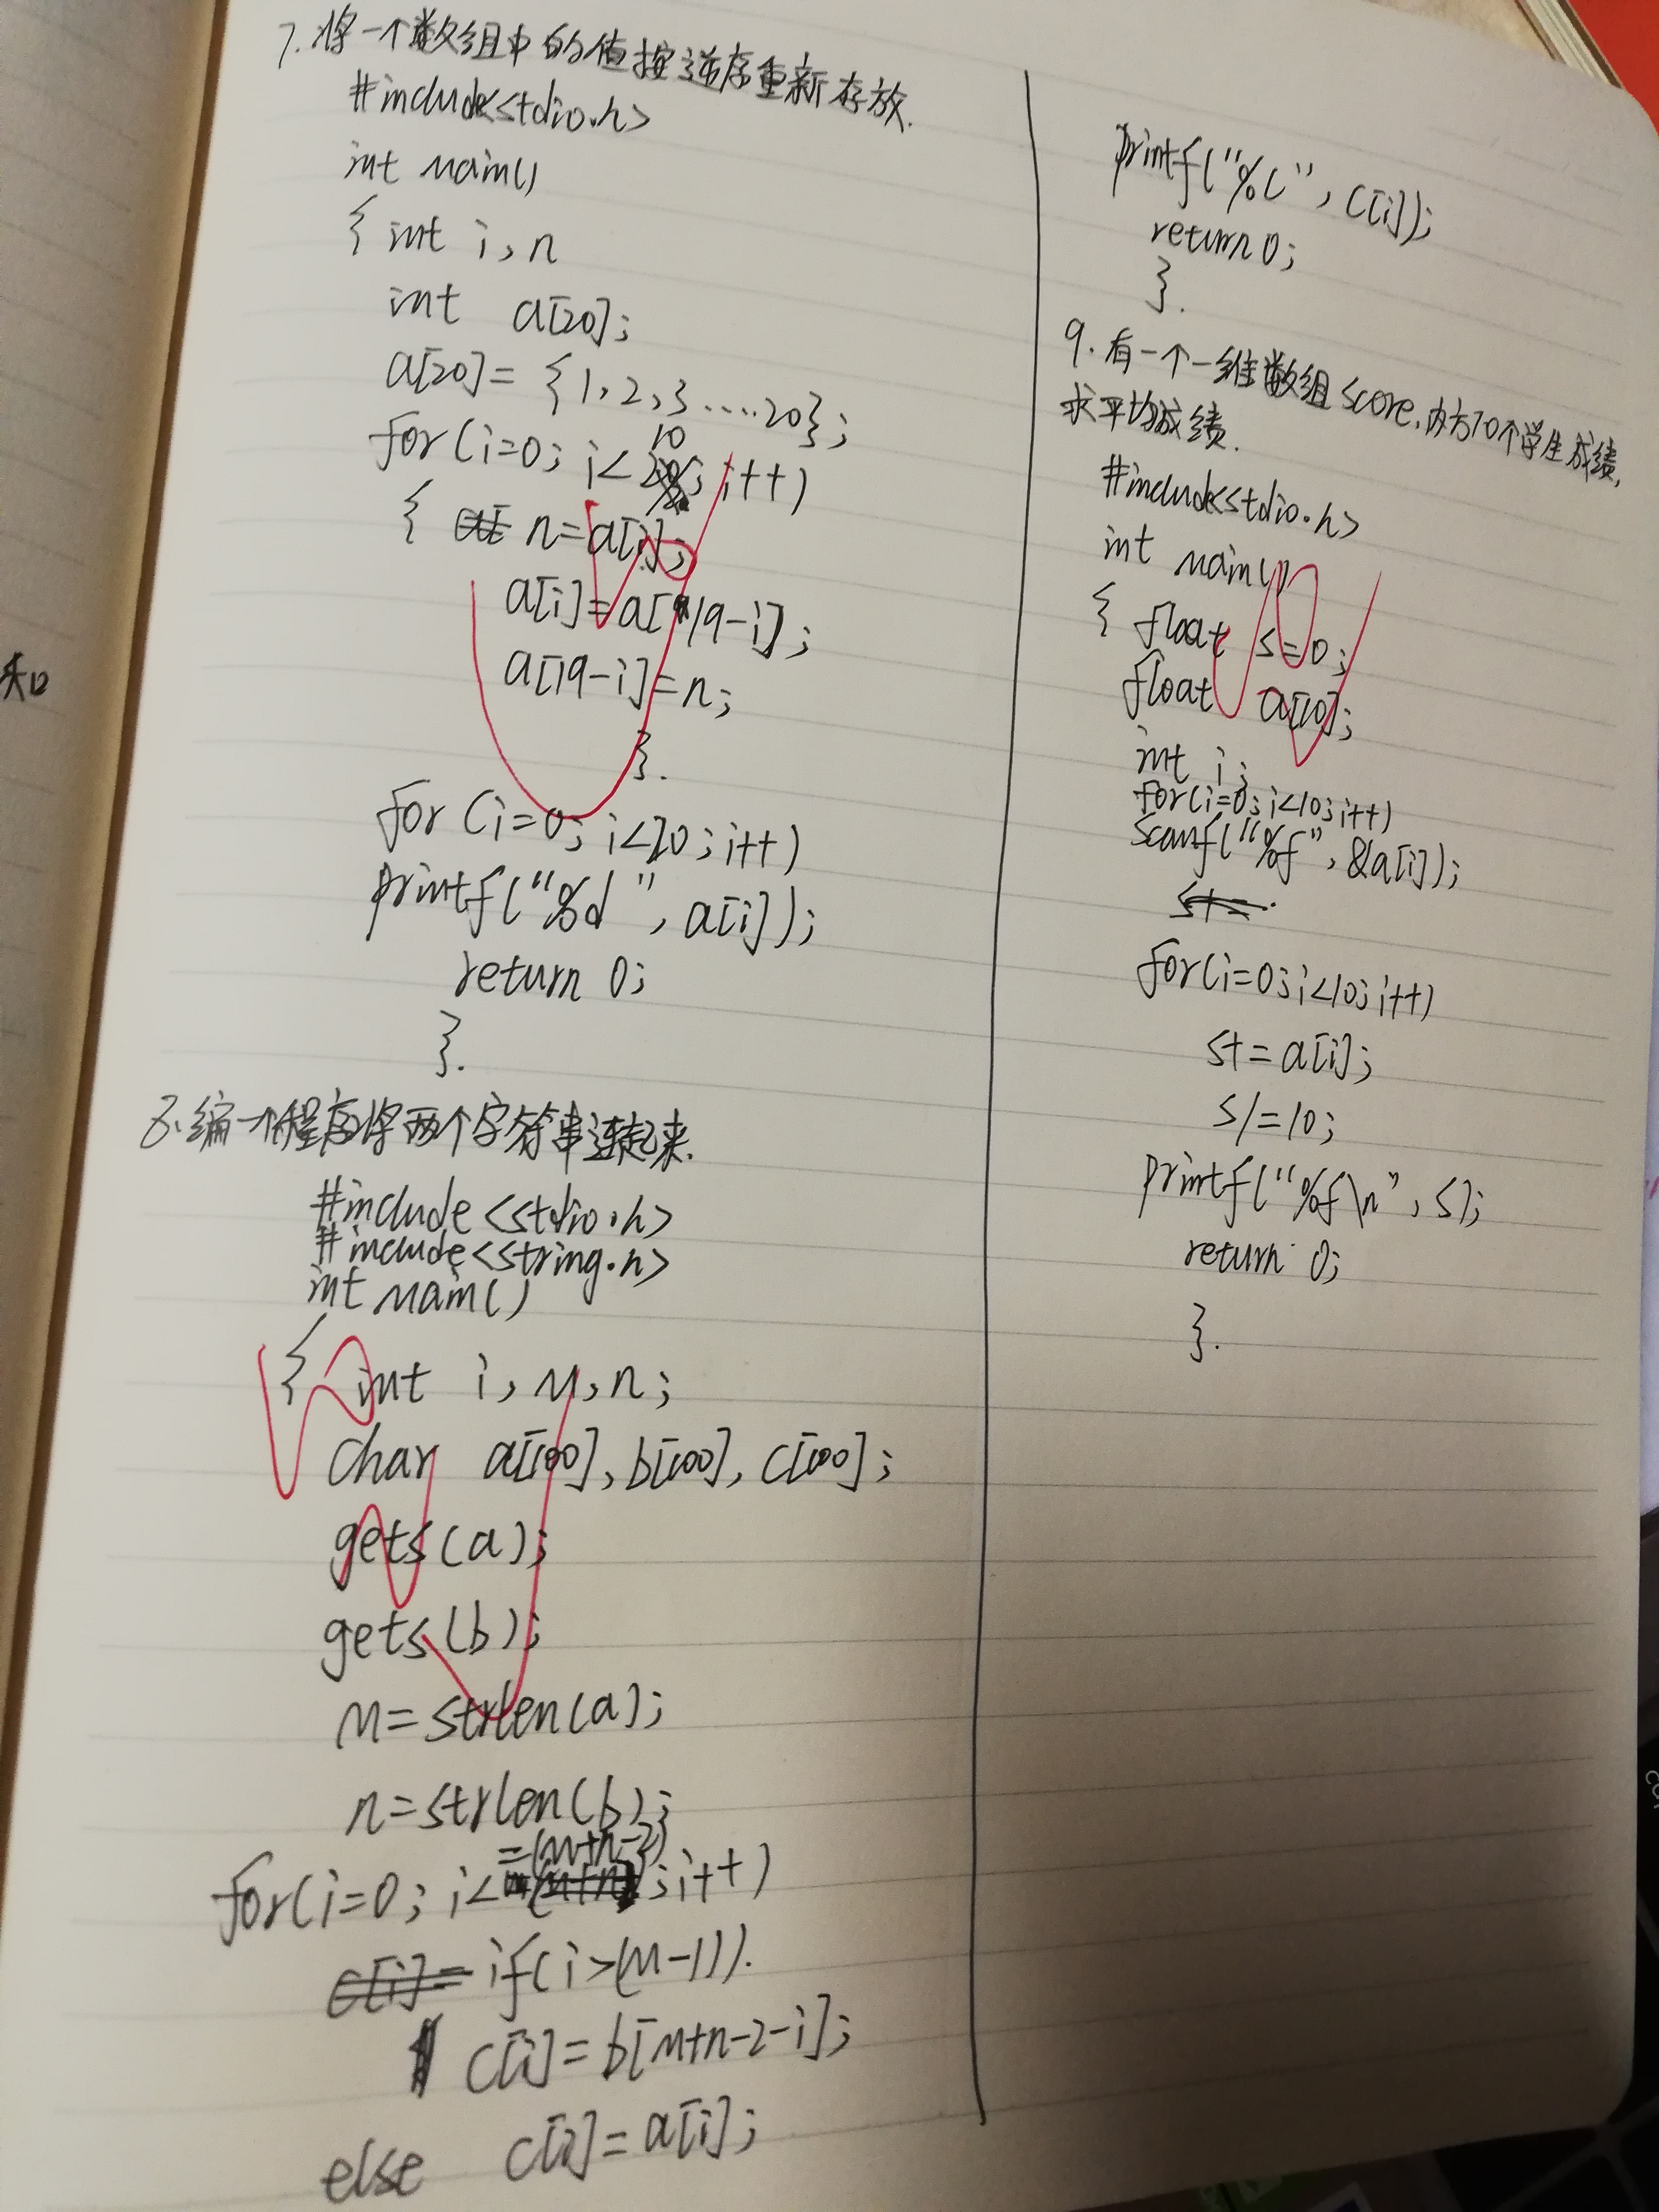 7. 将一个数组中的值按逆序重新存放.
#include<stdio.h>
int main()
{ int i, n
int a[20];
a[20]= {1,2,3....20};
for(i=0; i<10; i++)
{ n=a[i];
a[i]=a[19-i];
a[19-i]=n;
}.
for (i=0; i<20; i++)
printf("%d", a[i]);
return 0;
}.
8.编一个程序将两个字符串连起来.
#include<stdio.h>
#include<string.h>
int main()
{ int i, m, n;
char a[100], b[100], c[100];
gets(a);
gets(b);
m=strlen(a);
n=strlen(b);
for(i=0; i<=(m+n-2);i++)
if(i>(m-1)).
c[i]=b[m+n-2-i];
else c[i]=a[i];
printf("%c", c[i]);
return 0;
}.
9.有一个一维数组score,内放10个学生成绩,
求平均成绩.
#include<stdio.h>
int main()
{ float s=0;
float a[10];
int i;
for(i=0;i<10;i++)
scanf("%f", &a[i]);
for(i=0;i<10;i++)
s+=a[i];
s/=10;
printf("%f\n", s);
return 0;
}.